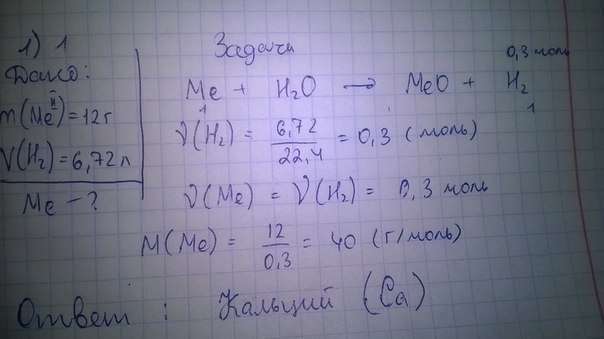 1) 1
Задачи
Дано:
m(Me) = 12 г
II
V(H₂) = 6,72 л
Me - ?
0,3 моль
Me + H₂O → MeO + H₂
1 1
ν(H₂) = 6,72 / 22,4 = 0,3 (моль)
ν(Me) = ν(H₂) = 0,3 моль
M(Me) = 12 / 0,3 = 40 (г/моль)
Ответ : Кальций (Ca)